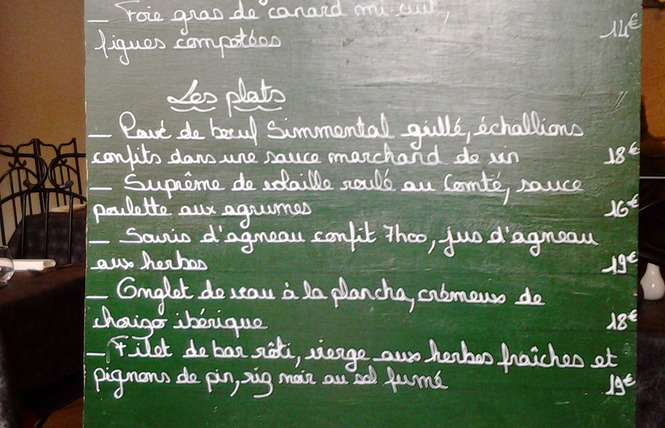 _ Foie gras de canard mi-cuit, 14€
figues compotées
Les plats
_ Pavé de bœuf Simmental grillé, échallions
confits dans une sauce marchand de vin 18€
_ Suprême de volaille roulé au Comté, sauce
poulette aux agrumes 16€
_ Souris d'agneau confit 7h00, jus d'agneau
aux herbes 19€
_ Onglet de veau à la plancha, crémeux de
chorizo ibérique 18€
_ Filet de bar rôti, vierge aux herbes fraîches et
pignons de pin, riz noir au sel fumé 19€